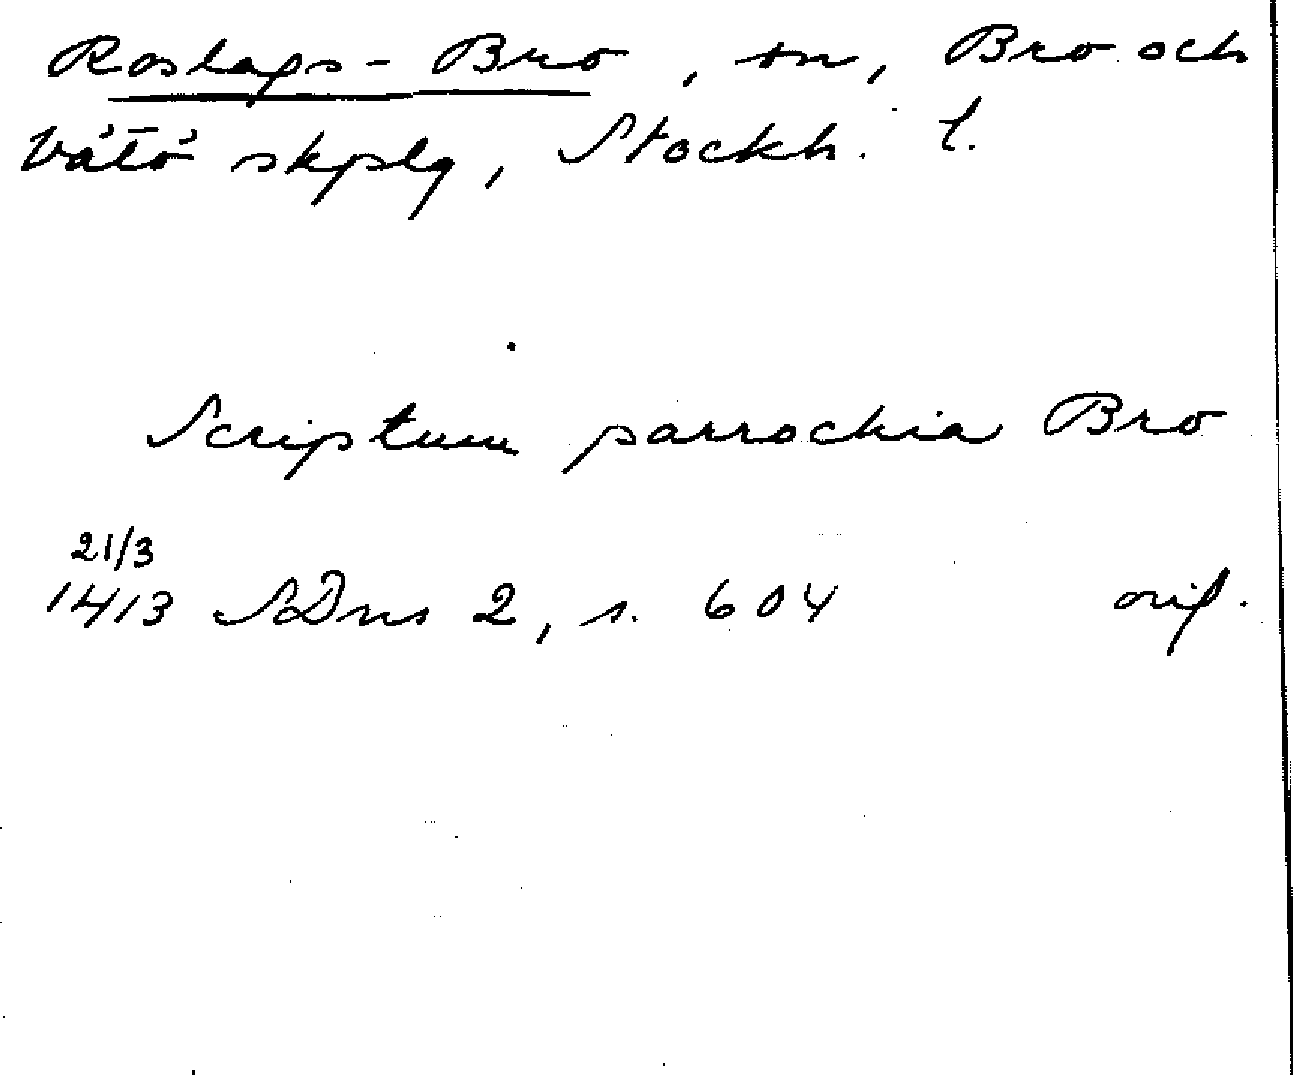 Roslags-Bro, sn, Bro och
Vätö skplg, Stockh. l.
Scriptum parrochia Bro
21/3
1413 SDns 2, s. 604 orig.